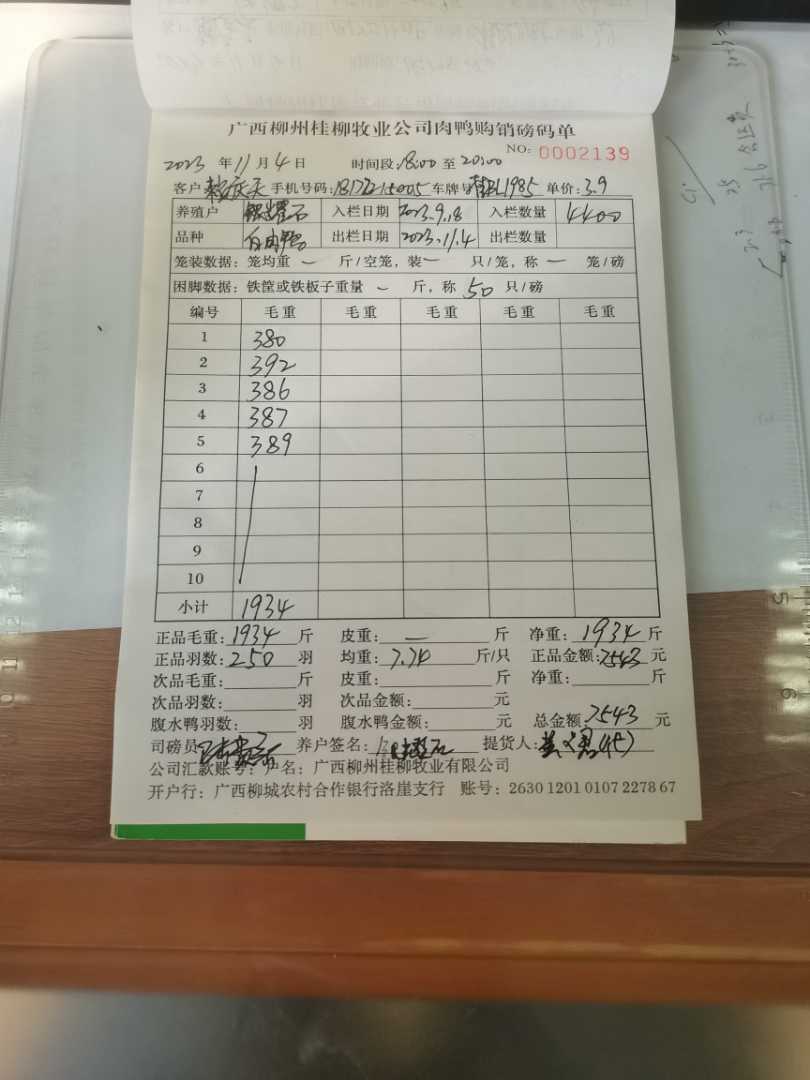 广西柳州桂柳牧业公司肉鸭购销磅码单
NO: 0002139
2023 年 11 月 4 日 时间段: 18:00 至 20:00
客户 手机号码: 车牌号 BL1985 单价: 3.9
养殖户 石 入栏日期 2023.9.18 入栏数量 4400
品种 白肉鸭 出栏日期 2023.11.4 出栏数量
笼装数据: 笼均重 一 斤/空笼, 装 一 只/笼, 称 一 笼/磅
困脚数据: 铁筐或铁板子重量 - 斤, 称 50 只/磅
编号 毛重 毛重 毛重 毛重 毛重
1 380
2 392
3 386
4 387
5 389
6
7
8
9
10
小计 1934
正品毛重: 1934 斤 皮重: — 斤 净重: 1934 斤
正品羽数: 250 羽 均重: 7.74 斤/只 正品金额: 7543 元
次品毛重: 斤 皮重: 斤 净重: 斤
次品羽数: 羽 次品金额: 元
腹水鸭羽数: 羽 腹水鸭金额: 元 总金额: 7543 元
司磅员 养户签名: 提货人: (代)
公司汇款账号: 户名: 广西柳州桂柳牧业有限公司
开户行: 广西柳城农村合作银行洛崖支行 账号: 2630 1201 0107 2278 67